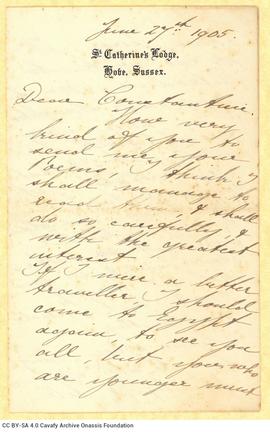 June 27th 1905.
St. Catherine's Lodge,
Hove, Sussex.
Dear Constantine.
How very
kind of you to
send me your
Poems, I think I
shall manage to
read them, & shall
do so carefully &
with the greatest
interest
If I were a better
traveller, I should
come to Egypt
again, to see you
all, but you who
are younger must
CC BY-SA 4.0 Cavafy Archive Onassis Foundation